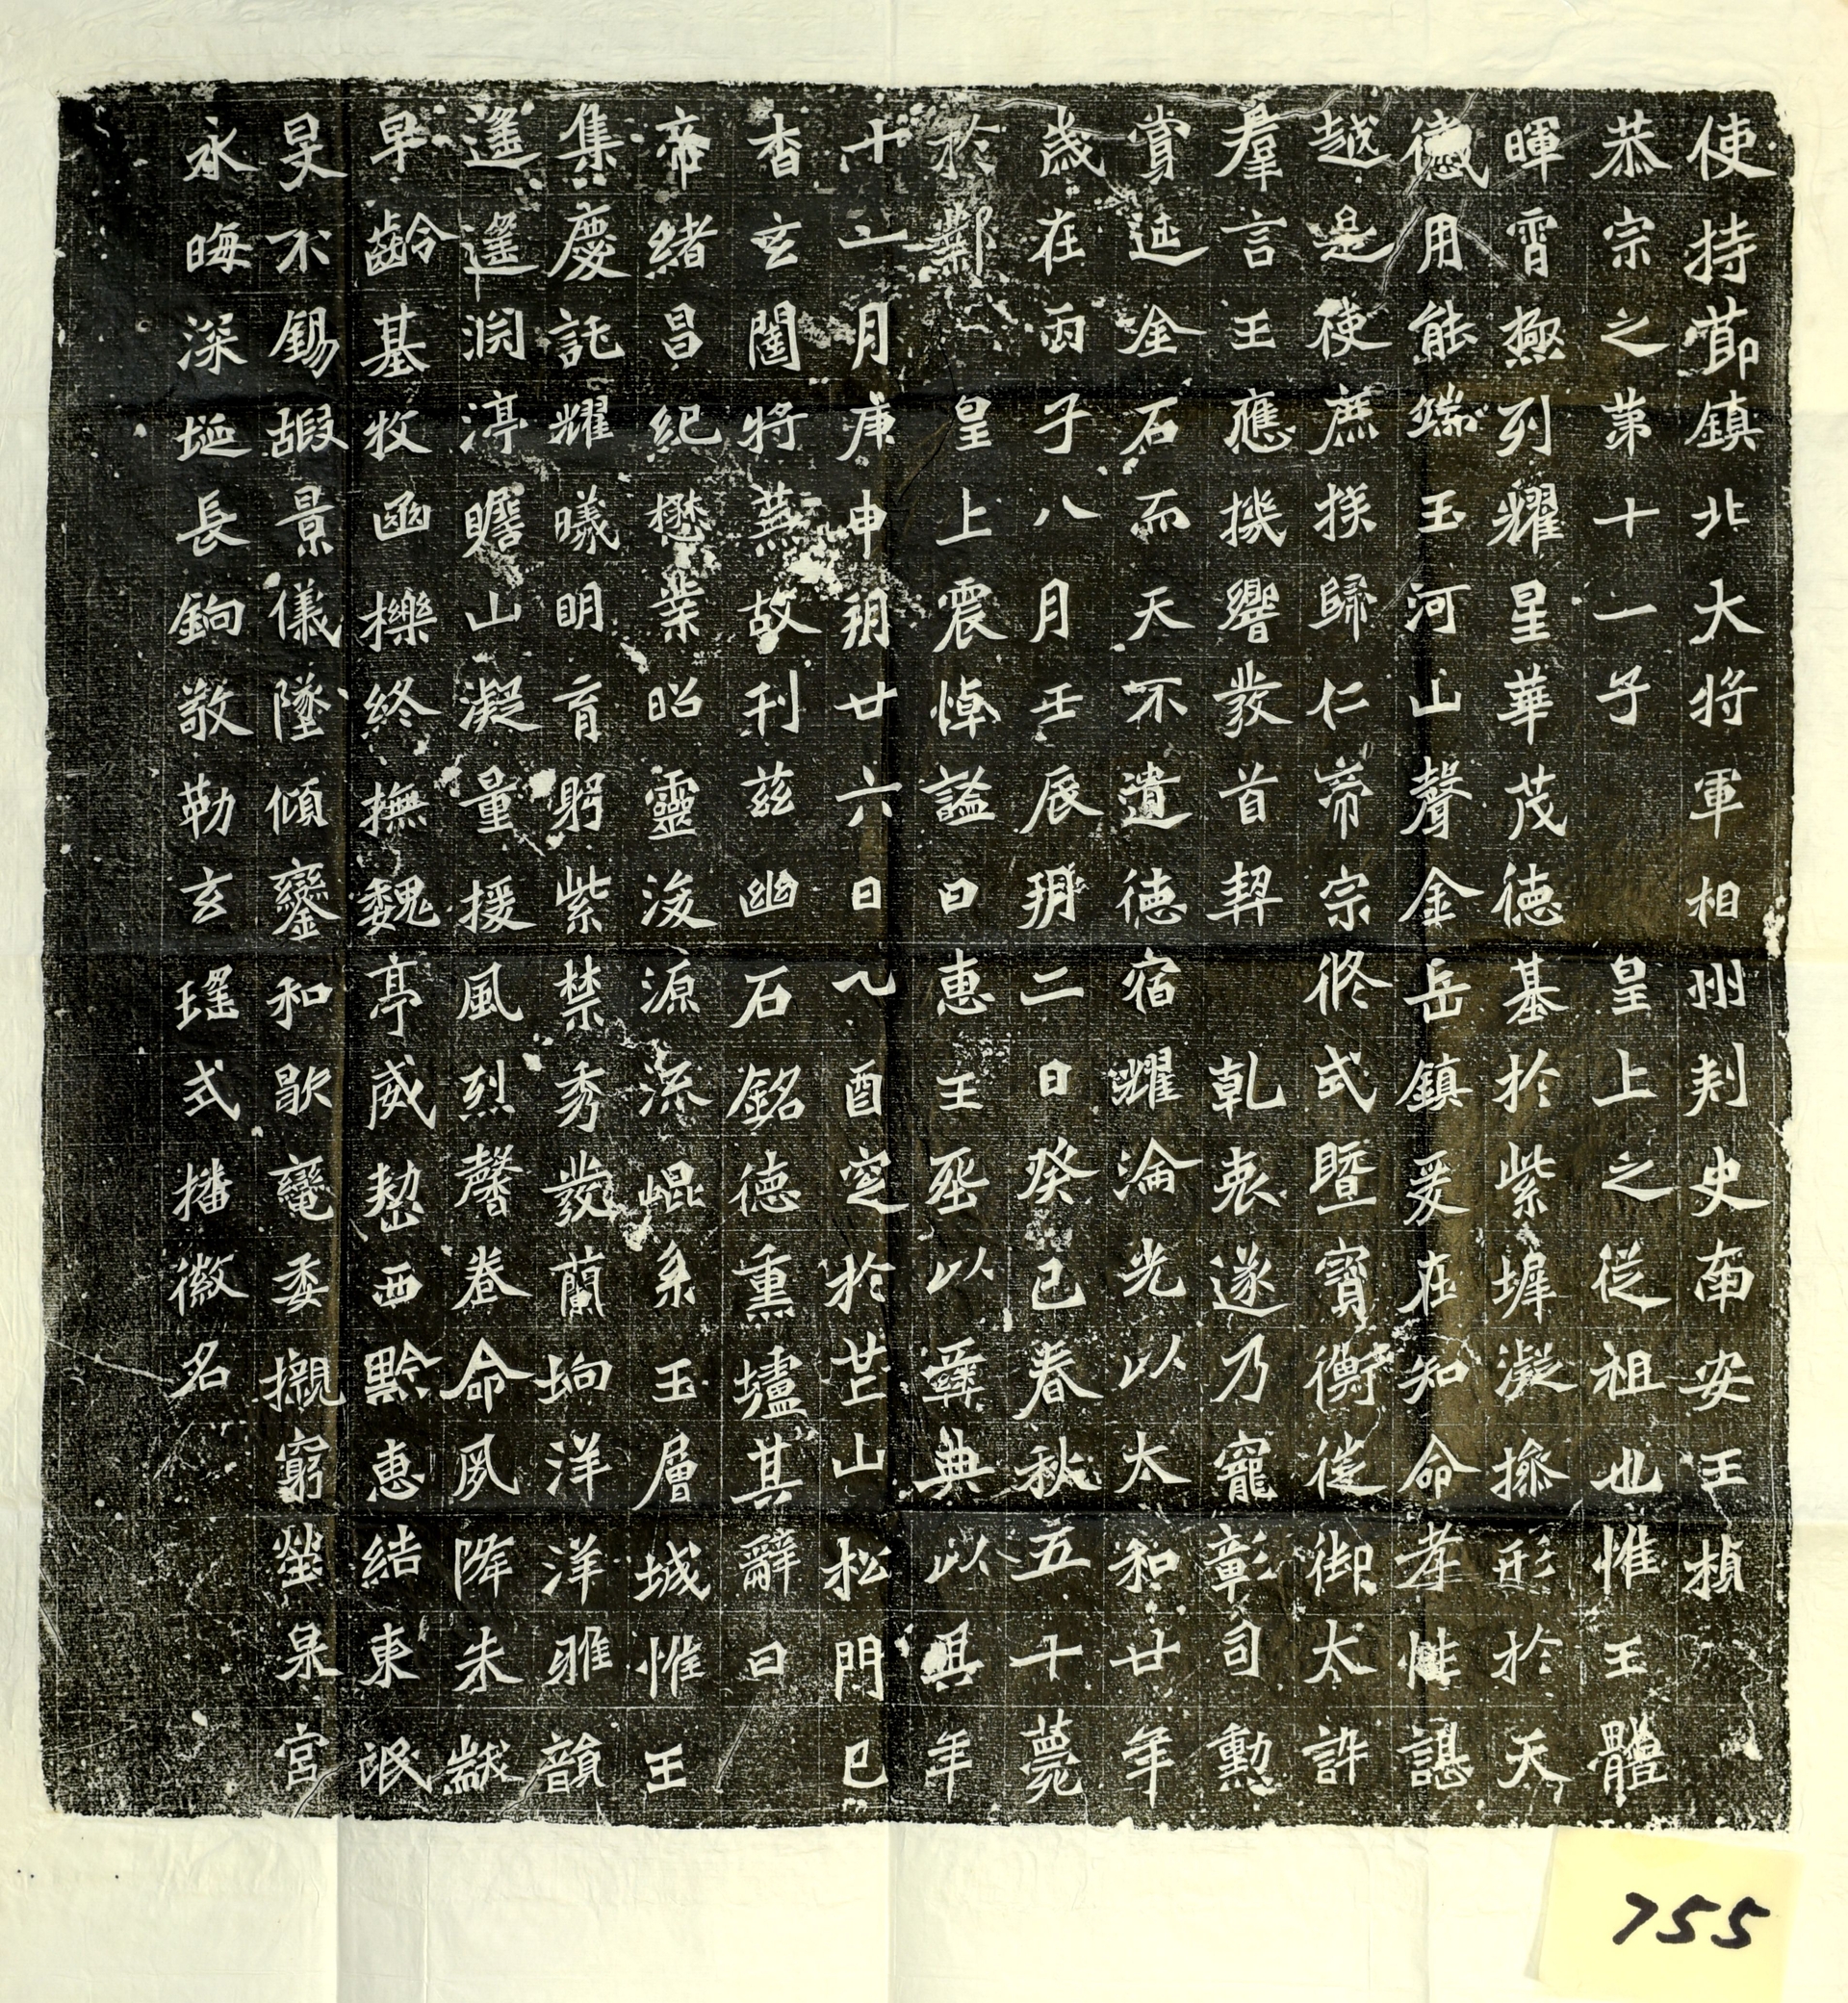 使持節鎮北大將軍相州刺史南安王楨
恭宗之第十一子 皇上之從祖也惟王體
暉霄極列耀星華茂德基於紫墀凝操形於天
感用能端玉河山聲金岳鎮爰在知命孝性諶
越是使庶族歸仁帝宗攸式暨寶衡徙御大訊
羣言王應機響發首契 乾衷遂乃寵彰司勳
賞延金石而天不遺德宿耀淪光以太和廿年
歲在丙子八月壬辰朔二日癸巳春秋五十薨
於鄴 皇上震悼謚曰惠王葬以彝典以其年
十一月庚申朔廿六日乙酉窆於芒山松門已
杳玄闥將蕪故刊茲幽石銘德熏壚其辭曰
帝緒昌紀懋業昭靈浚源流崐系玉層城惟王
集慶託耀曦明育躬紫禁秀發蘭坰洋洋雅韻
遙遙淵渟瞻山凝量援風烈馨卷命夙降朱黻
早齡基牧函櫟終撫魏亭威愸西黔惠結東氓
旻不錫嘏景儀墜傾鑾和歇轙委櫬窮塋泉宮
永晦深埏長鉤敬勒玄瑤式播徽名
755